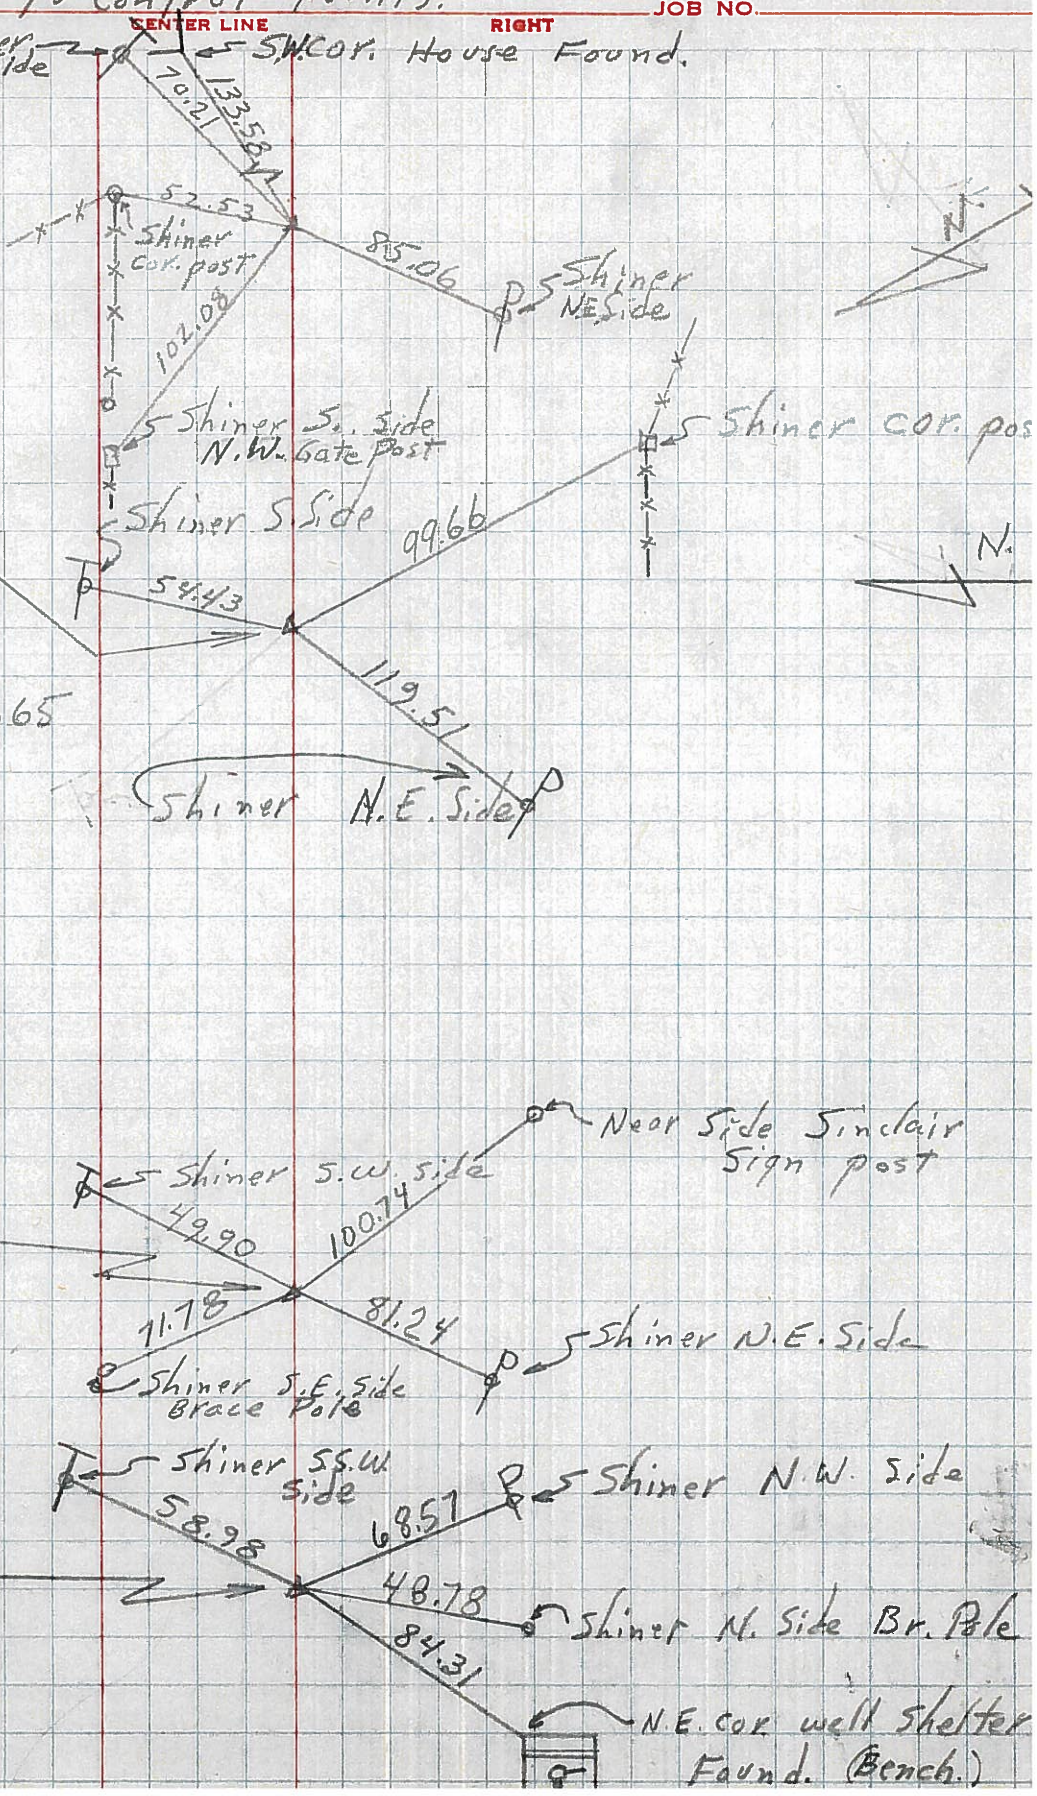 to Control Points.
JOB NO.
CENTER LINE
RIGHT
S.W. Cor. House Found.
ide
70.21
133.58
52.53
Shiner
cor. post
85.06
Shiner
N.E. Side
N.
102.08
Shiner S. Side
N.W. Gate Post
Shiner cor. pos
Shiner S. Side
99.66
N.
54.43
119.51
.65
Shiner N.E. Side
Near Side Sinclair
Sign post
Shiner S.W. side
49.90
100.74
71.78
81.24
Shiner N.E. Side
Shiner S.E. Side
Brace Pole
Shiner S.S.W.
Side
Shiner N.W. Side
58.98
68.57
48.78
Shiner N. Side Br. Pole
84.31
N.E. cor. well Shelter
Found. (Bench.)